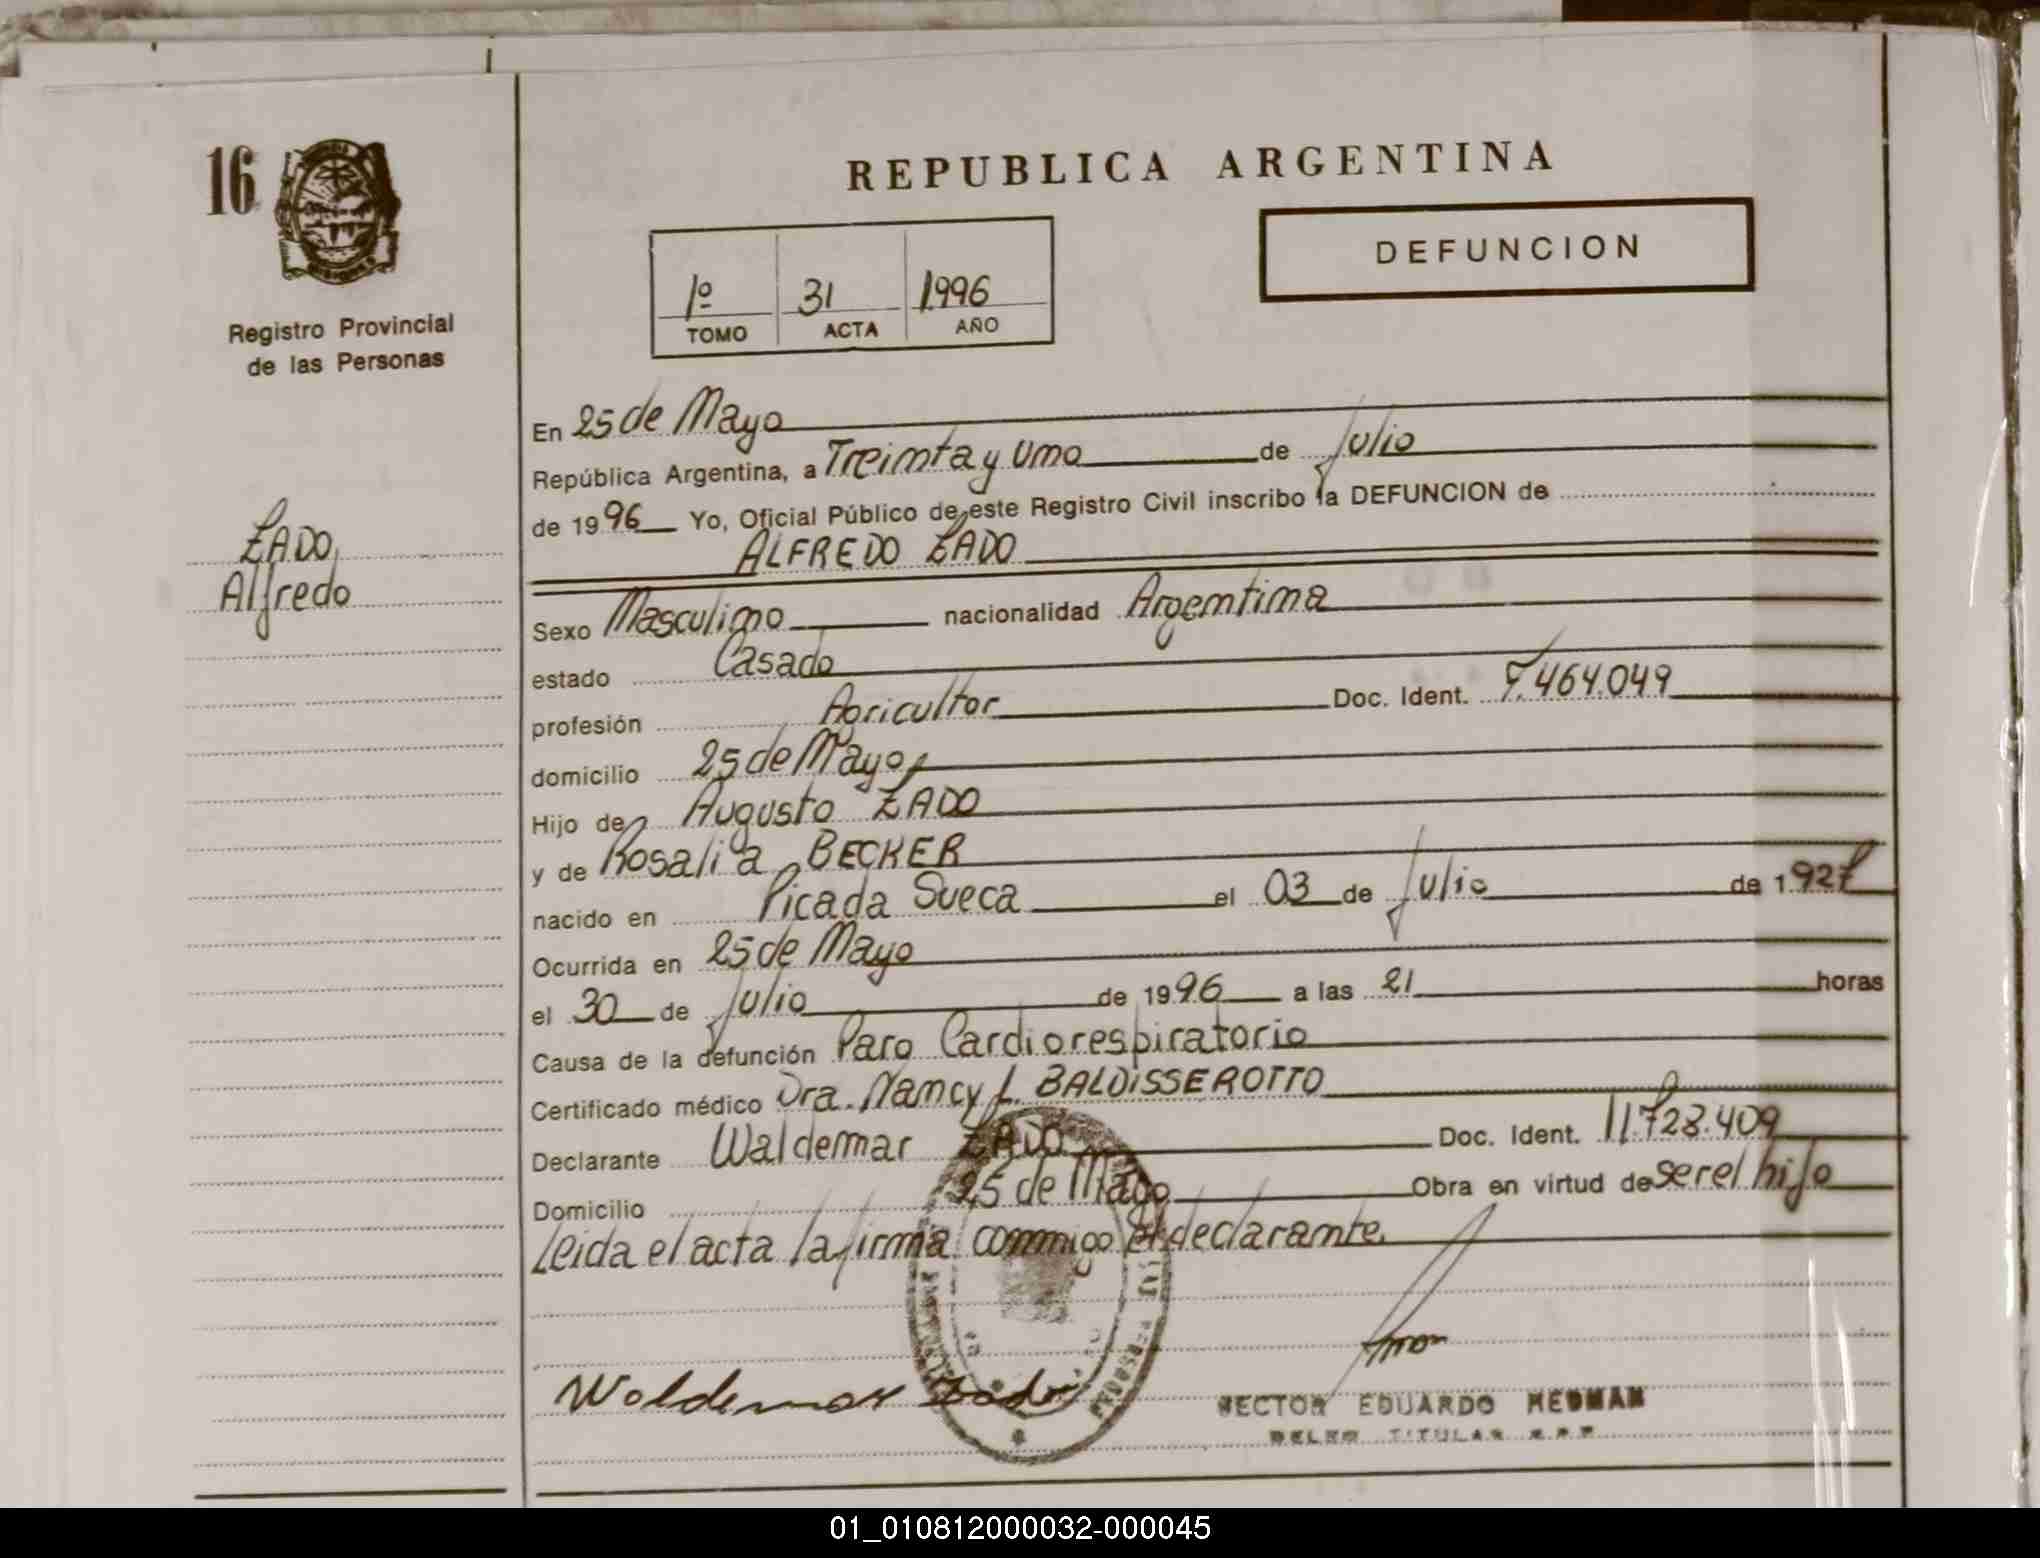 16
Registro Provincial
de las Personas
ZADO,
Alfredo
REPUBLICA ARGENTINA
DEFUNCION
1º 31 1996
TOMO ACTA AÑO
En 25 de Mayo
República Argentina, a Treinta y Uno de Julio
de 1996 Yo, Oficial Público de este Registro Civil inscribo la DEFUNCION de
ALFREDO ZADO
Sexo Masculino nacionalidad Argentina
estado Casado
profesión Agricultor Doc. Ident. 7.464.049
domicilio 25 de Mayo
Hijo de Augusto ZADO
y de Rosalia BECKER
nacido en Picada Sueca el 03 de Julio de 1927
Ocurrida en 25 de Mayo
el 30 de Julio de 1996 a las 21 horas
Causa de la defunción Paro Cardiorespiratorio
Certificado médico Dra. Nancy L. BALDISSEROTTO
Declarante Waldemar ZADO Doc. Ident. 11.728.409
Domicilio 25 de Mayo Obra en virtud de ser el hijo
Leida el acta la firma conmigo el declarante.
Woldemar Zado
HECTOR EDUARDO HEDMAN
TITULAR
01_010812000032-000045